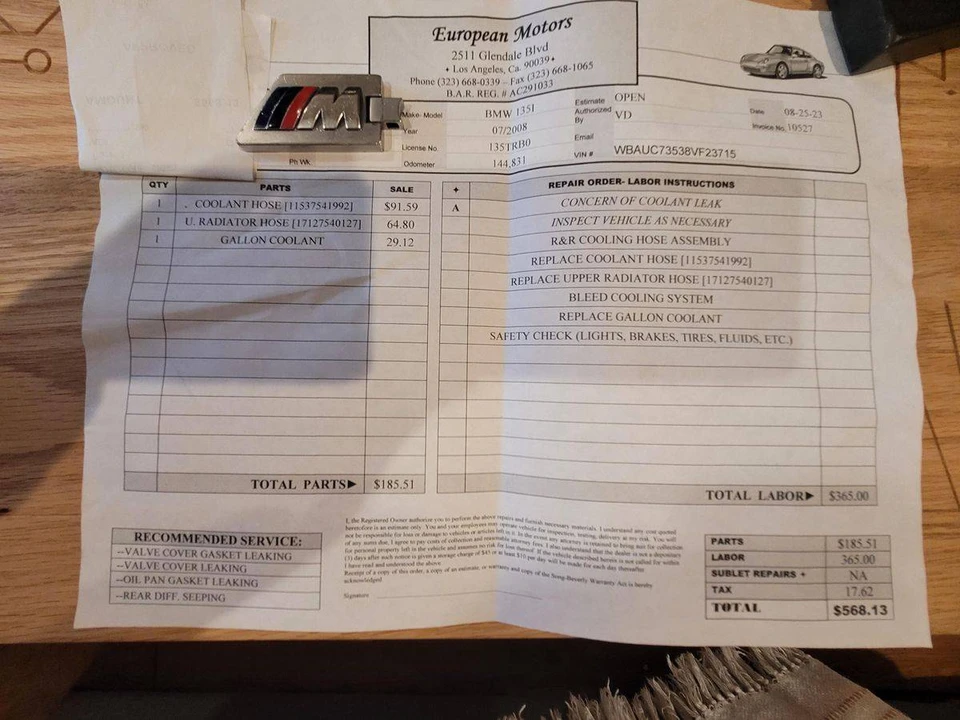 European Motors
2511 Glendale Blvd
• Los Angeles, Ca. 90039 •
Phone (323) 668-0339 – Fax (323) 668-1065
B.A.R. REG. # AC291033
M
Make- Model BMW 135I
Year 07/2008
License No. 135TRB0
Odometer 144,831
Ph Wk.
Estimate OPEN
Authorized By VD
Email
VIN # WBAUC73538VF23715
Date 08-25-23
Invoice No. 10527
QTY PARTS SALE
1 . COOLANT HOSE [11537541992] $91.59
1 U. RADIATOR HOSE [17127540127] 64.80
1 GALLON COOLANT 29.12
TOTAL PARTS► $185.51
+ REPAIR ORDER- LABOR INSTRUCTIONS
A CONCERN OF COOLANT LEAK
INSPECT VEHICLE AS NECESSARY
R&R COOLING HOSE ASSEMBLY
REPLACE COOLANT HOSE [11537541992]
REPLACE UPPER RADIATOR HOSE [17127540127]
BLEED COOLING SYSTEM
REPLACE GALLON COOLANT
SAFETY CHECK (LIGHTS, BRAKES, TIRES, FLUIDS, ETC.)
TOTAL LABOR► $365.00
RECOMMENDED SERVICE:
--VALVE COVER GASKET LEAKING
--VALVE COVER LEAKING
--OIL PAN GASKET LEAKING
--REAR DIFF. SEEPING
I, the Registered Owner authorize you to perform the above repairs and furnish necessary materials. I understand any cost quoted
heretofore is an estimate only. You and your employees may operate vehicle for inspection, testing, delivery at my risk. You will
not be responsible for loss or damage to vehicles or articles left in it. In the event any attorney is retained to bring suit for collection
of any sums due, I agree to pay costs of collection and reasonable attorney fees. I also understand that the dealer is not a depositary
for personal property left in the vehicle and assumes no risk for loss thereof. If the vehicle described herein is not called for within
(3) days after such notice is given a storage charge of $45 or at least $15 per day will be made for each day thereafter.
I have read and understood the above
Receipt of a copy of this order, a copy of an estimate, or warranty and copy of the Song-Beverly Warranty Act is hereby
acknowledged
Signature
PARTS $185.51
LABOR 365.00
SUBLET REPAIRS + NA
TAX 17.62
TOTAL $568.13